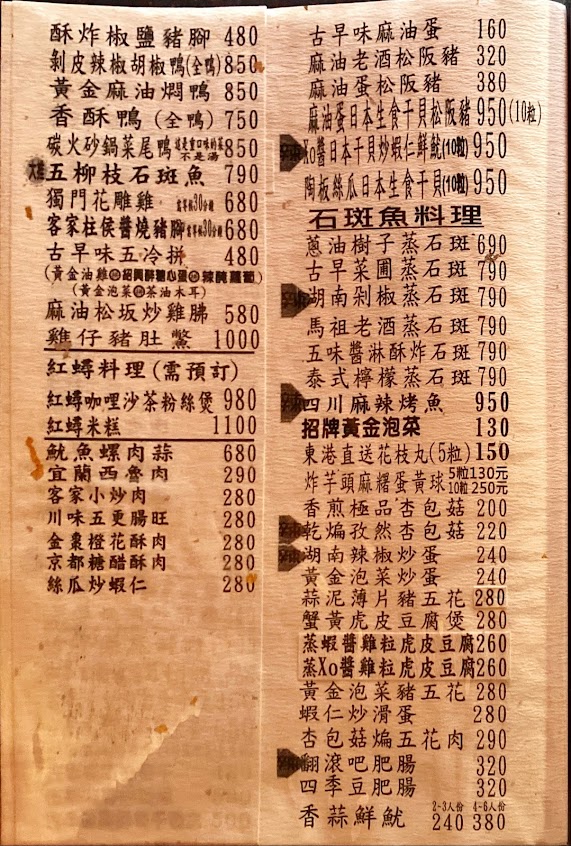 酥炸椒鹽豬腳 480
剝皮辣椒胡椒鴨(全鴨) 850
黃金麻油燜鴨 850
香酥鴨(全鴨) 750
碳火砂鍋菜尾鴨 這是重口味的菜不是湯 850
五柳枝石斑魚 790
獨門花雕雞 當軍候30分鐘 680
客家柱侯醬燒豬腳 當軍候30分鐘 680
古早味五冷拼 480
(黃金油雞 紹興醉糖心蛋 辣醃蘿蔔)
(黃金泡菜 茶油木耳)
麻油松坂炒雞胇 580
雞仔豬肚鱉 1000
紅蟳料理(需預訂)
紅蟳咖哩沙茶粉絲煲 980
紅蟳米糕 1100
魷魚螺肉蒜 680
宜蘭西魯肉 290
客家小炒肉 280
川味五更腸旺 280
金棗橙花酥肉 280
京都糖醋酥肉 280
絲瓜炒蝦仁 280
古早味麻油蛋 160
麻油老酒松阪豬 320
麻油蛋松阪豬 380
麻油蛋日本生食干貝松阪豬 950(10粒)
Xo醬日本干貝炒蝦仁鮮魷(10粒) 950
陶板絲瓜日本生食干貝(10粒) 950
石斑魚料理
蔥油樹子蒸石斑 690
古早菜圃蒸石斑 790
湖南剁椒蒸石斑 790
馬祖老酒蒸石斑 790
五味醬淋酥炸石斑 790
泰式檸檬蒸石斑 790
四川麻辣烤魚 950
招牌黃金泡菜 130
東港直送花枝丸(5粒) 150
炸芋頭麻糬蛋黃球 5粒130元 10粒250元
香煎極品杏包菇 200
乾煸孜然杏包菇 220
湖南辣椒炒蛋 240
黃金泡菜炒蛋 240
蒜泥薄片豬五花 280
蟹黃虎皮豆腐煲 280
蒸蝦醬雞粒虎皮豆腐 260
蒸Xo醬雞粒虎皮豆腐 260
黃金泡菜豬五花 280
蝦仁炒滑蛋 280
杏包菇煸五花肉 290
翻滾吧肥腸 320
四季豆肥腸 320
香蒜鮮魷 2-3人份 240 4-6人份 380